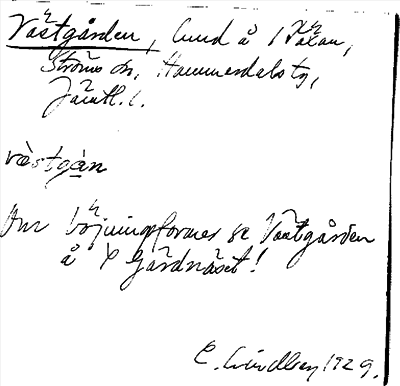 Västgården, lund å / Välan,
Ströms sn, Hammerdals tg,
Jämtl. l.
västgån
Om böjningsformer se Västgården
å X Gärdnäset!
C. Lindberg 1929.